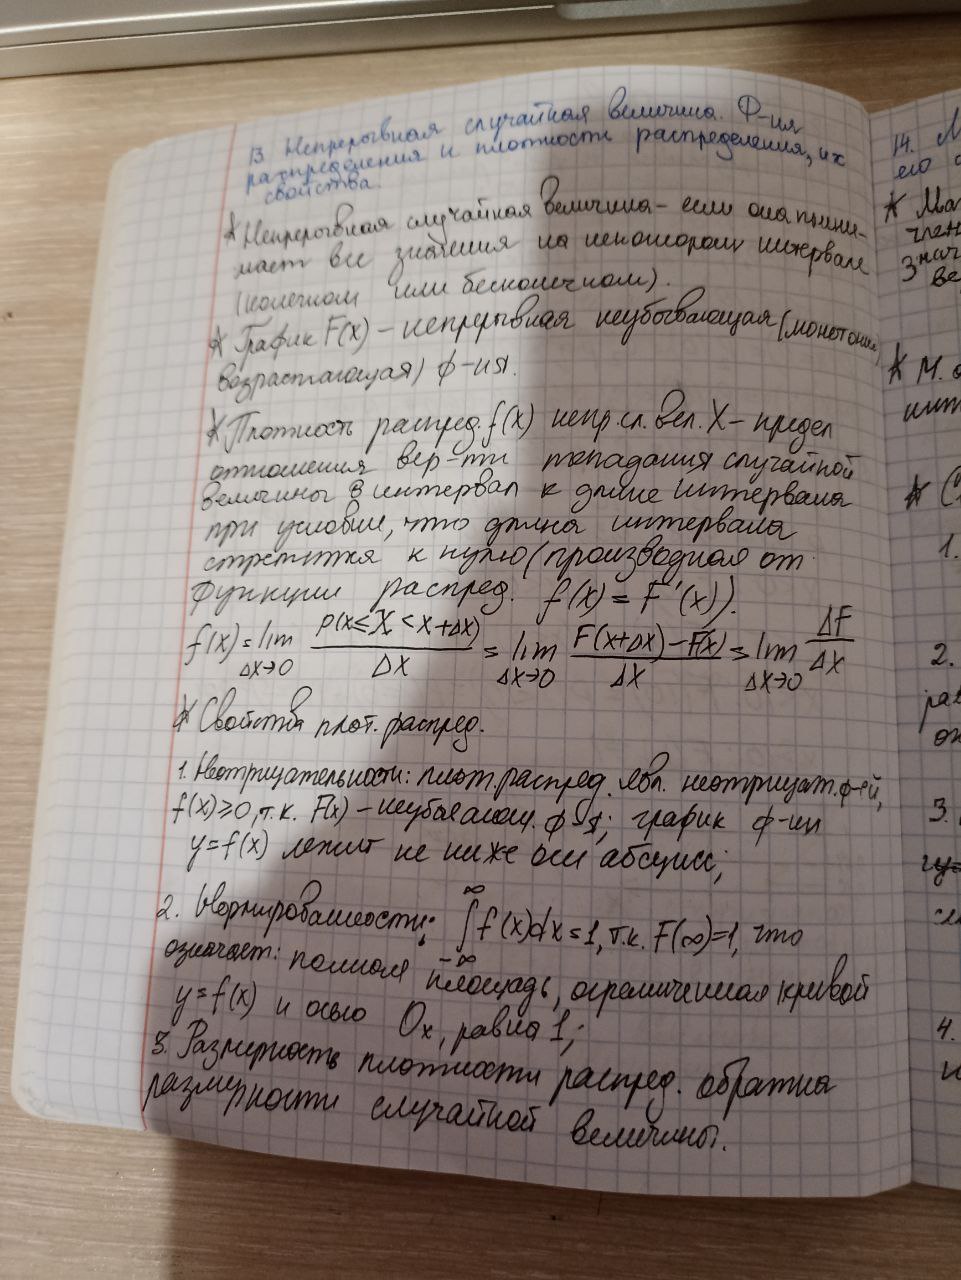 13. Непрерывная случайная величина. Ф-ия
распределения и плотность распределения, их
свойства.
* Непрерывная случайная величина – если она прини-
мает все значения на некотором интервале
(конечном или бесконечном).
* График F(x) – непрерывная неубывающая (монотонно
возрастающая) ф-ия.
* Плотность распред. f(x) непр. сл. вел. X – предел
отношения вер-ти попадания случайной
величины в интервал к длине интервала
при условии, что длина интервала
стремится к нулю (производная от
функции распред. f(x) = F'(x)).
f(x) = lim Δx→0 P(x ≤ X < x + Δx) / Δx = lim Δx→0 F(x+Δx) – F(x) / Δx = lim Δx→0 ΔF / Δx
* Свойства плот. распред.
1. Неотрицательность: плот. распред. явл. неотрицат. ф-ей,
f(x) ≥ 0, т.к. F(x) – неубывающ. ф-я; график ф-ии
y = f(x) лежит не ниже оси абсцисс;
2. Нормированность: ∫ -∞ ∞ f(x)dx = 1, т.к. F(∞) = 1, что
означает: полная площадь, ограниченная кривой
y = f(x) и осью Ox, равна 1;
3. Размерность плотности распред. обратна
размерности случайной величины.
14. М
его
* Мат
член
знач
ве
* М. о
инт
* С
1.
2.
ра
3.
4.